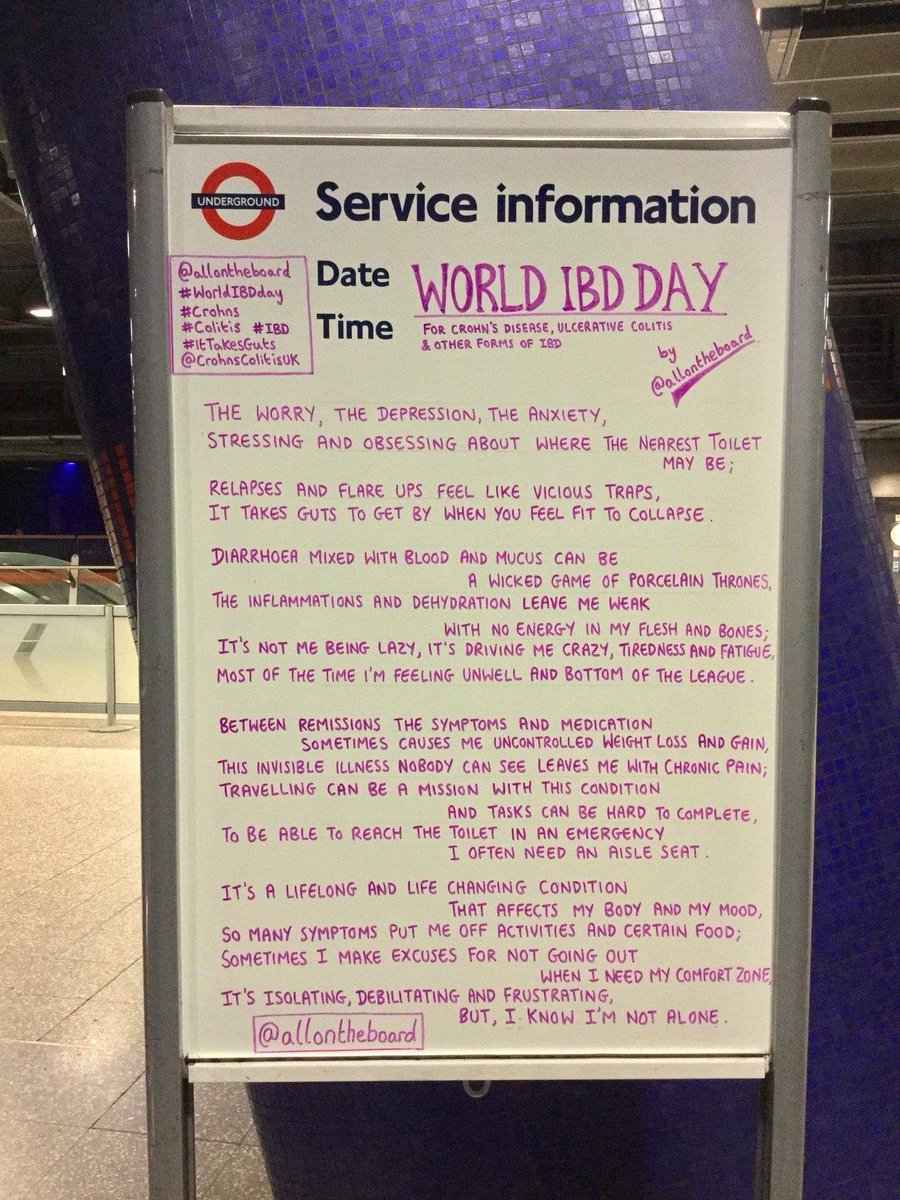 UNDERGROUND
Service information
@allontheboard
#WorldIBDday
#Crohns
#Colitis #IBD
#ItTakesGuts
@CrohnsColitisUK
Date
Time
WORLD IBD DAY
FOR CROHN'S DISEASE, ULCERATIVE COLITIS
& OTHER FORMS OF IBD
by
@allontheboard
THE WORRY, THE DEPRESSION, THE ANXIETY,
STRESSING AND OBSESSING ABOUT WHERE THE NEAREST TOILET
MAY BE;
RELAPSES AND FLARE UPS FEEL LIKE VICIOUS TRAPS,
IT TAKES GUTS TO GET BY WHEN YOU FEEL FIT TO COLLAPSE.
DIARRHOEA MIXED WITH BLOOD AND MUCUS CAN BE
A WICKED GAME OF PORCELAIN THRONES,
THE INFLAMMATIONS AND DEHYDRATION LEAVE ME WEAK
WITH NO ENERGY IN MY FLESH AND BONES;
IT'S NOT ME BEING LAZY, IT'S DRIVING ME CRAZY, TIREDNESS AND FATIGUE,
MOST OF THE TIME I'M FEELING UNWELL AND BOTTOM OF THE LEAGUE.
BETWEEN REMISSIONS THE SYMPTOMS AND MEDICATION
SOMETIMES CAUSES ME UNCONTROLLED WEIGHT LOSS AND GAIN,
THIS INVISIBLE ILLNESS NOBODY CAN SEE LEAVES ME WITH CHRONIC PAIN;
TRAVELLING CAN BE A MISSION WITH THIS CONDITION
AND TASKS CAN BE HARD TO COMPLETE,
TO BE ABLE TO REACH THE TOILET IN AN EMERGENCY
I OFTEN NEED AN AISLE SEAT.
IT'S A LIFELONG AND LIFE CHANGING CONDITION
THAT AFFECTS MY BODY AND MY MOOD,
SO MANY SYMPTOMS PUT ME OFF ACTIVITIES AND CERTAIN FOOD;
SOMETIMES I MAKE EXCUSES FOR NOT GOING OUT
WHEN I NEED MY COMFORT ZONE,
IT'S ISOLATING, DEBILITATING AND FRUSTRATING,
BUT, I KNOW I'M NOT ALONE.
@allontheboard